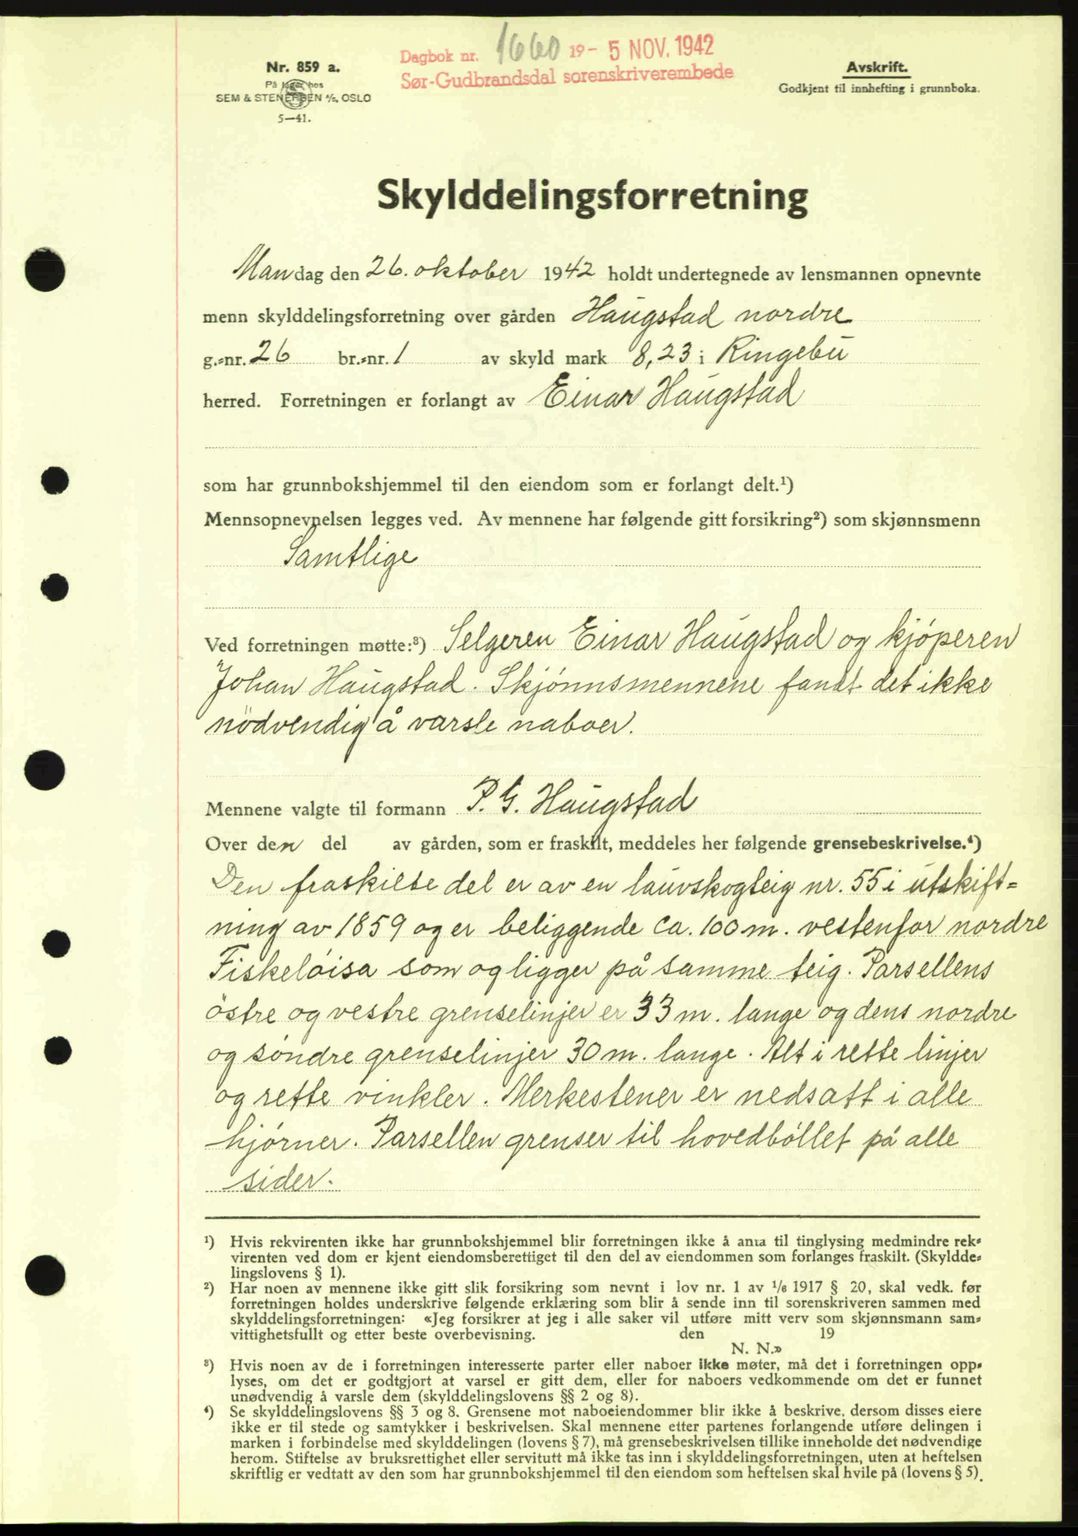 Dagbok nr. 1660 19 - 5 NOV. 1942
Sør-Gudbrandsdal sorenskriverembede
Nr. 859 a.
På lager hos
SEM & STENERSEN A/S, OSLO
5—41.
Avskrift.
Godkjent til innhefting i grunnboka.
Skylddelingsforretning
Mandag den 26. oktober 1942 holdt undertegnede av lensmannen opnevnte
menn skylddelingsforretning over gården Haugstad nordre
g.-nr. 26 br.-nr. 1 av skyld mark 8,23 i Ringebu
herred. Forretningen er forlangt av Einar Haugstad
som har grunnbokshjemmel til den eiendom som er forlangt delt.¹)
Mennsopnevnelsen legges ved. Av mennene har følgende gitt forsikring²) som skjønnsmenn
Samtlige
Ved forretningen møtte:³) Selgeren Einar Haugstad og kjøperen
Johan Haugstad. Skjønnsmennene fandt det ikke
nödvendig å varsle naboer.
Mennene valgte til formann P. G. Haugstad
Over den del av gården, som er fraskilt, meddeles her følgende grensebeskrivelse.⁴)
Den fraskilte del er av en lauvskogteig nr. 55 i utskift-
ning av 1859 og er beliggende ca. 100 m. vestenfor nordre
Fiskeløisa som og ligger på samme teig. Parsellens
östre og vestre grenselinjer er 33 m. lange og dens nordre
og søndre grenselinjer 30 m. lange. Alt i rette linjer
og rette vinkler. Merkestener er nedsatt i alle
hjørner. Parsellen grenser til hovedbøllet på alle
sider.
¹) Hvis rekvirenten ikke har grunnbokshjemmel blir forretningen ikke å anta til tinglysing medmindre rek-
virenten ved dom er kjent eiendomsberettiget til den del av eiendommen som forlanges fraskilt. (Skyldde-
lingslovens § 1).
²) Har noen av mennene ikke gitt slik forsikring som nevnt i lov nr. 1 av 1/6 1917 § 20, skal vedk. før
forretningen holdes underskrive følgende erklæring som blir å sende inn til sorenskriveren sammen med
skylddelingsforretningen: «Jeg forsikrer at jeg i alle saker vil utføre mitt verv som skjønnsmann sam-
vittighetsfullt og etter beste overbevisning. den 19
N. N.»
³) Hvis noen av de i forretningen interesserte parter eller naboer ikke møter, må det i forretningen opp-
lyses, om det er godtgjort at varsel er gitt dem, eller for naboers vedkommende om det er funnet
unødvendig å varsle dem (skylddelingslovens §§ 2 og 8).
⁴) Se skylddelingslovens §§ 3 og 8. Grensene mot naboeiendommer blir ikke å beskrive, dersom disses eiere
ikke er til stede og samtykker i beskrivelsen. Skal mennene etter partenes forlangende utføre delingen i
marken i forbindelse med skylddelingen (lovens § 7), må grensebeskrivelsen tillike inneholde det nødvendige
herom. Stiftelse av bruksrettighet eller servitutt må ikke tas inn i skylddelingsforretningen, uten at heftelsen
skriftlig er vedtatt av den som har grunnbokshjemmel til den eiendom som heftelsen skal hvile på (lovens § 5).